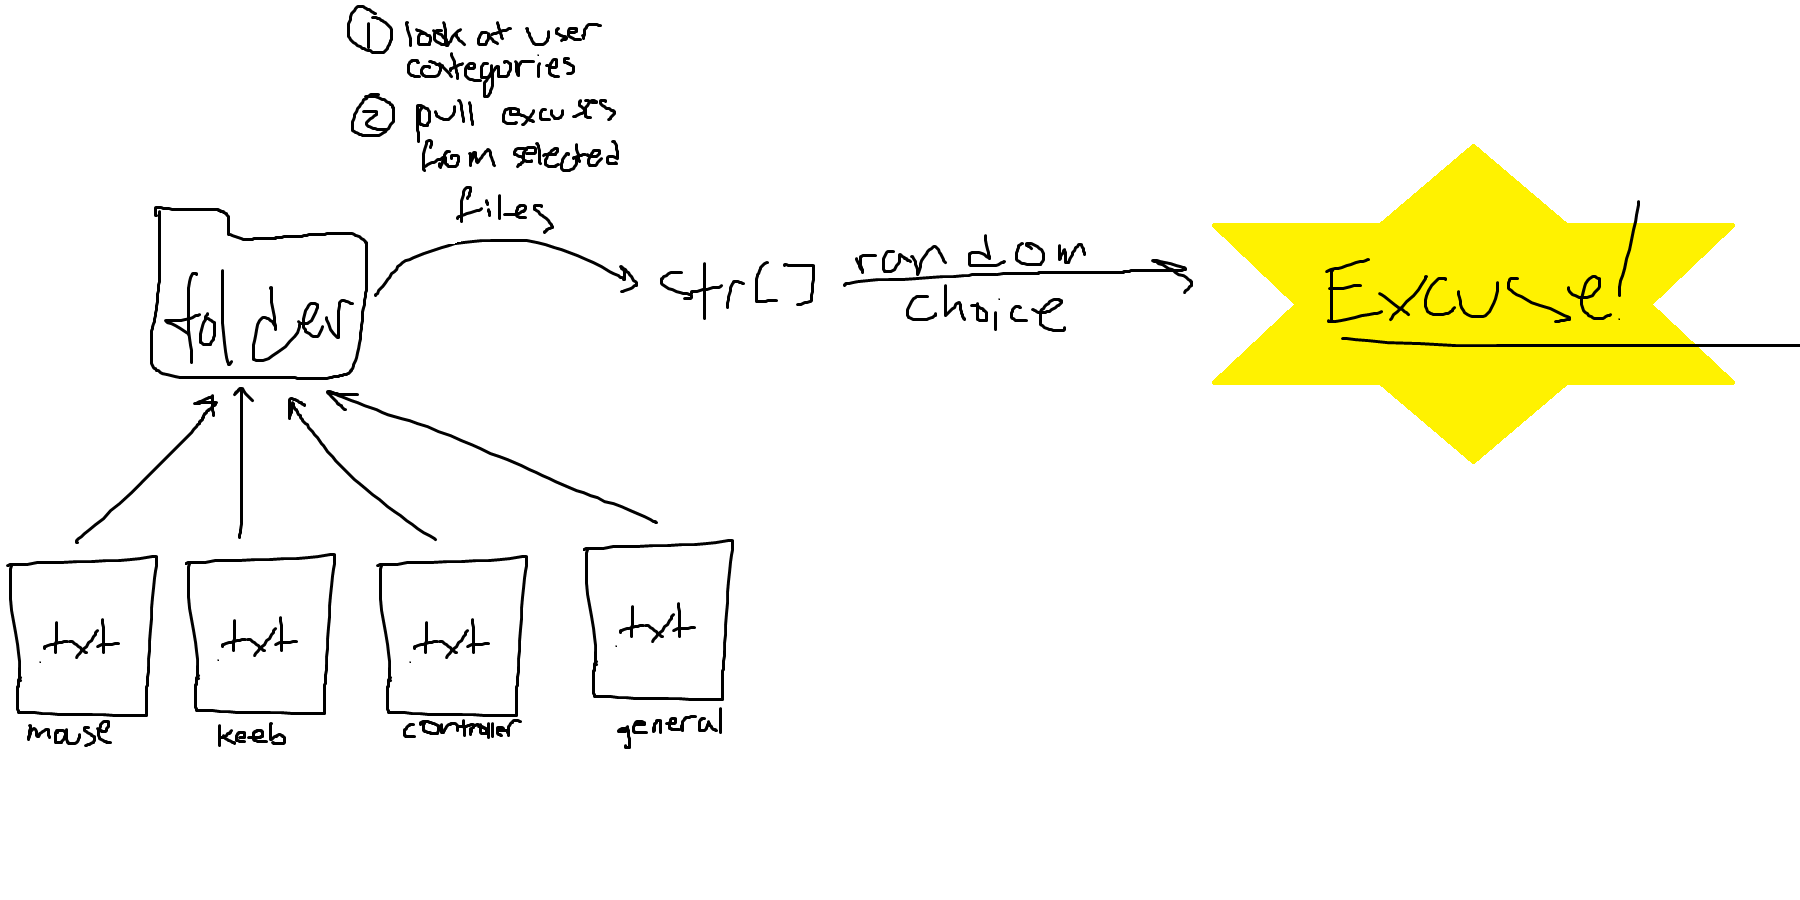 1 look at user
categories
2 pull excuses
from selected
files
folder
str[]
random
choice
Excuse!
txt
txt
txt
txt
mouse
keeb
controller
general